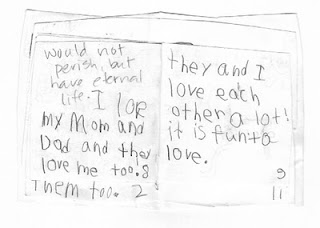 would not
perish, but
have eternal
life. I love
my Mom and
Dad and they
love me too. 8
Them too. 2
they and I
love each
other a lot!
it is fun to
love.
9
11